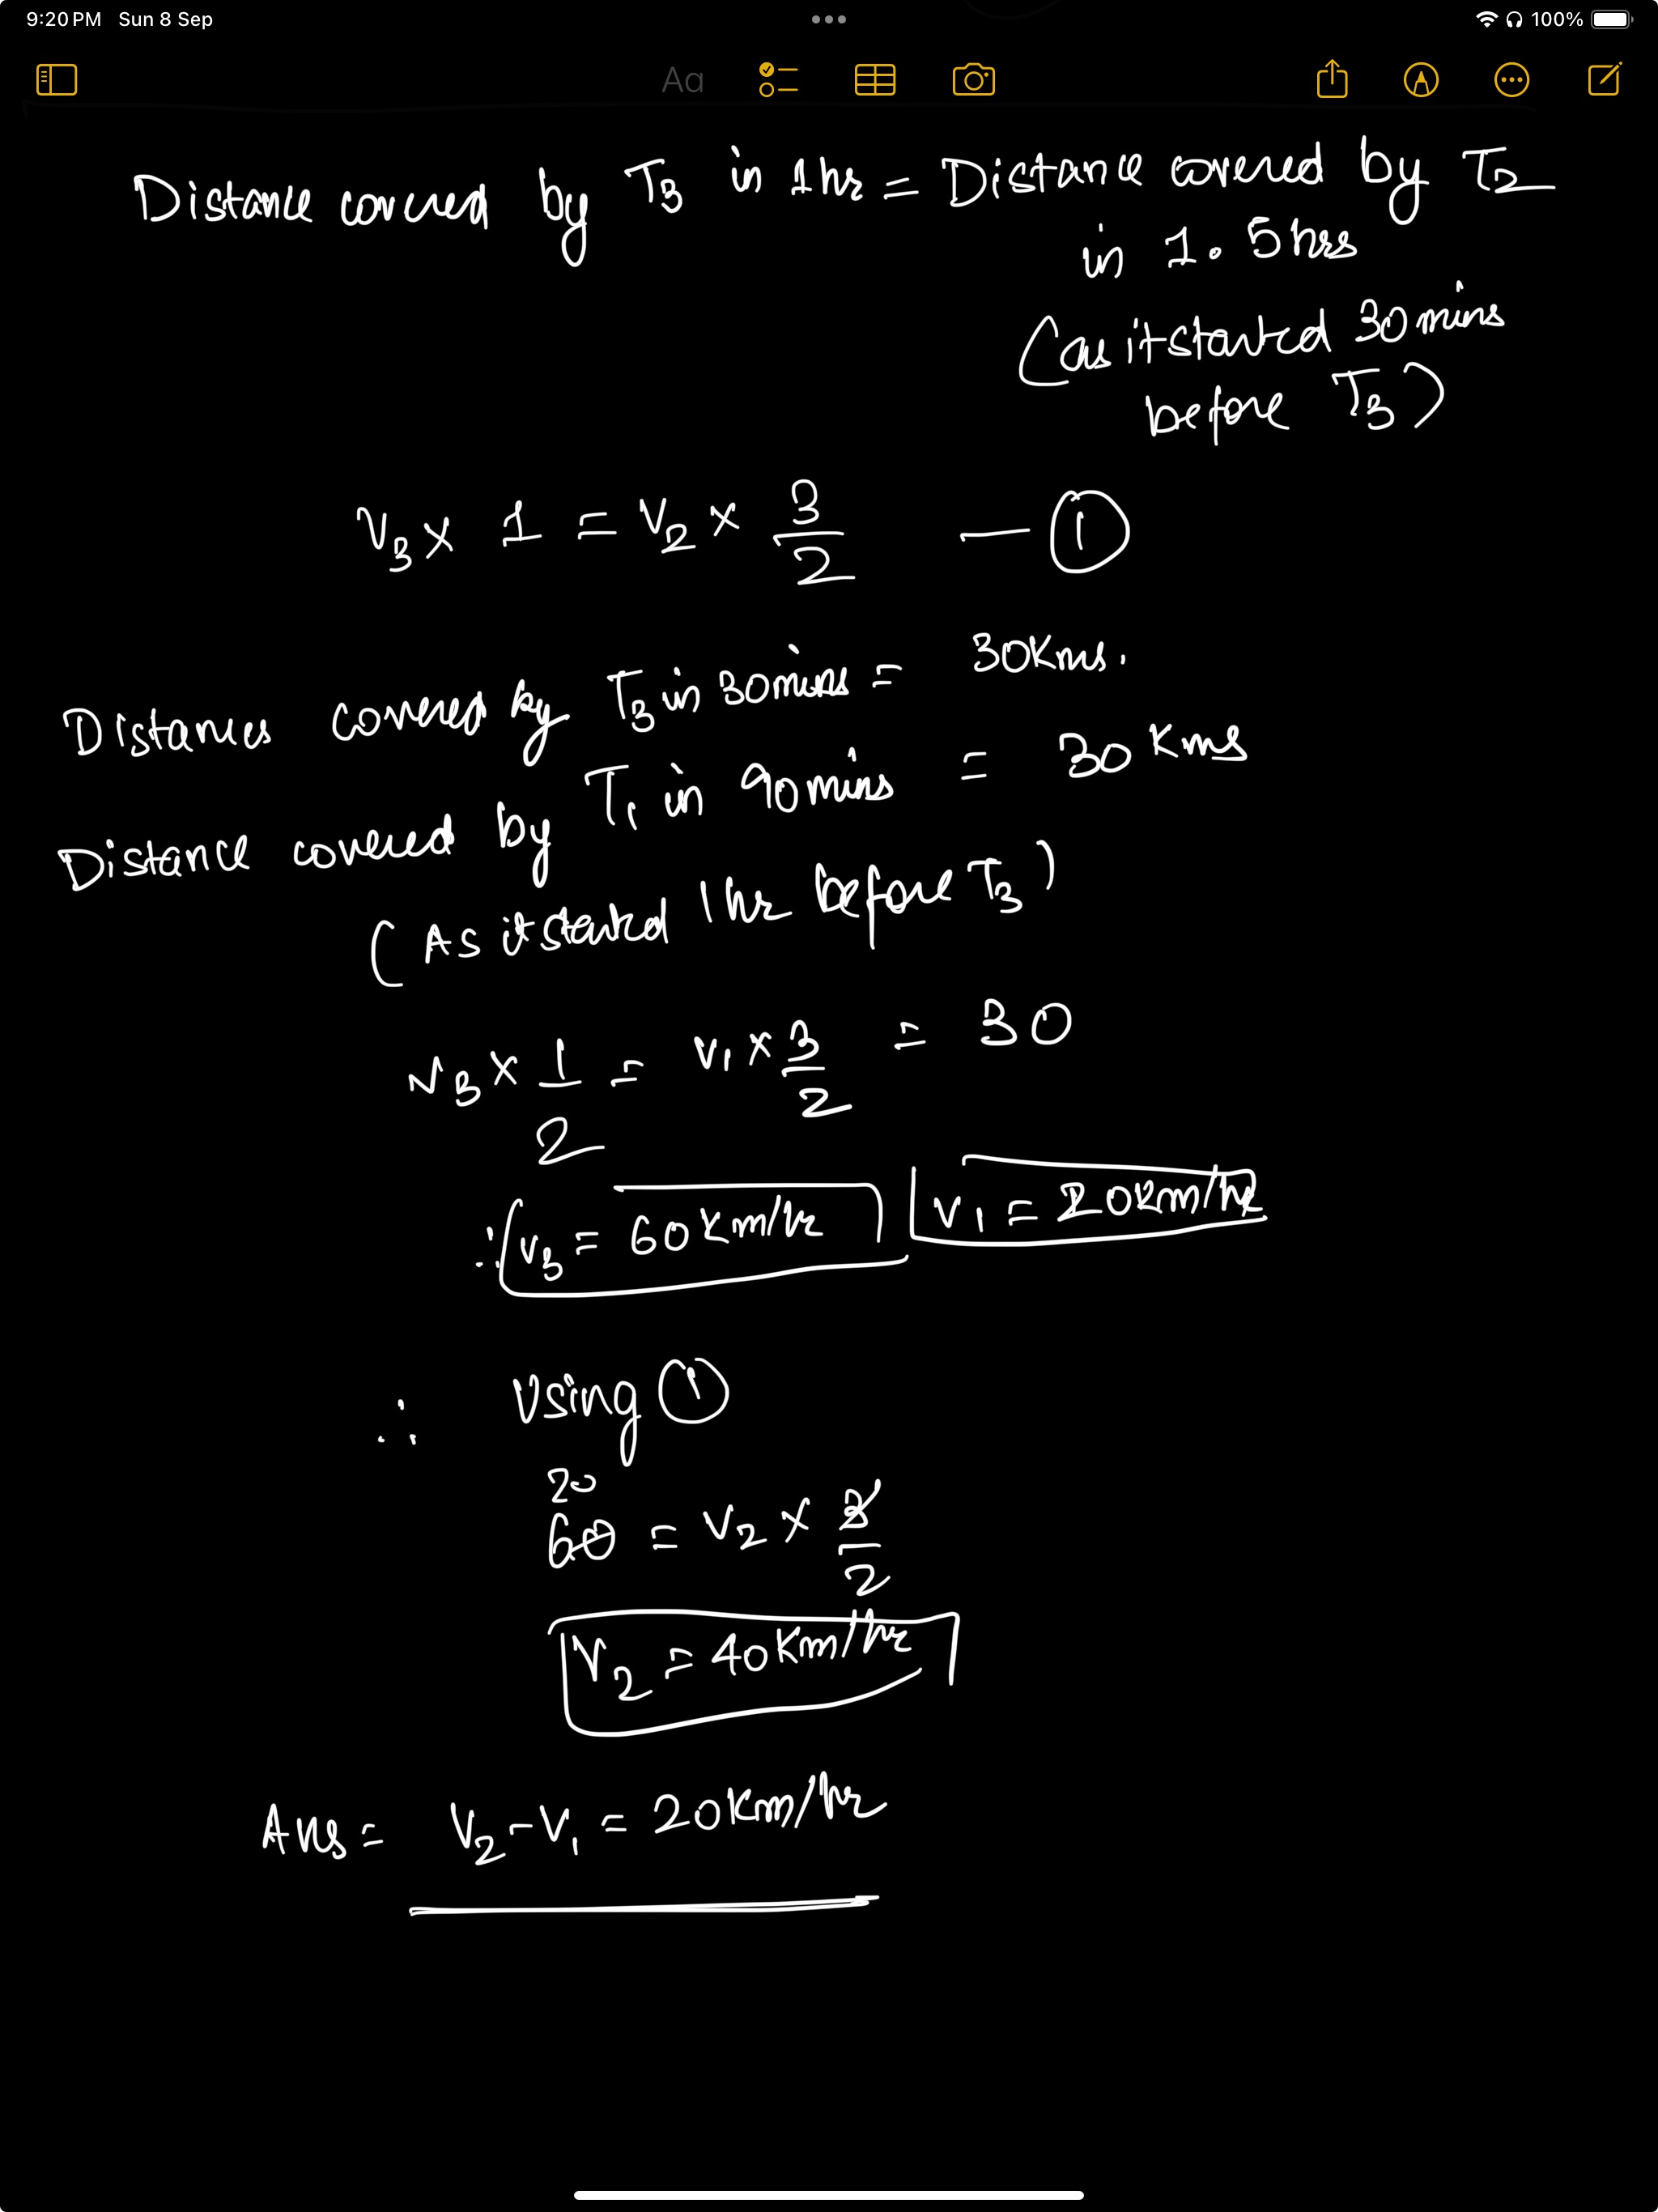 9:20 PM Sun 8 Sep
100%
Aa
Distance covered by T3 in 1hr = Distance covered by T2
in 1.5hrs
(as it started 30 mins
before T3)
V3 × 1 = V2 × 3/2 — ①
Distances covered by T3 in 30 mins = 30Kms.
Distance covered by T1 in 90 mins = 30 Kms
(As it started 1hr before T3)
V3 × 1/2 = V1 × 3/2 = 30
∴ V3 = 60Km/hr V1 = 20Km/hr
∴ Using ①
20
60 = V2 × 3/2
V2 = 40Km/hr
Ans = V2 - V1 = 20Km/hr